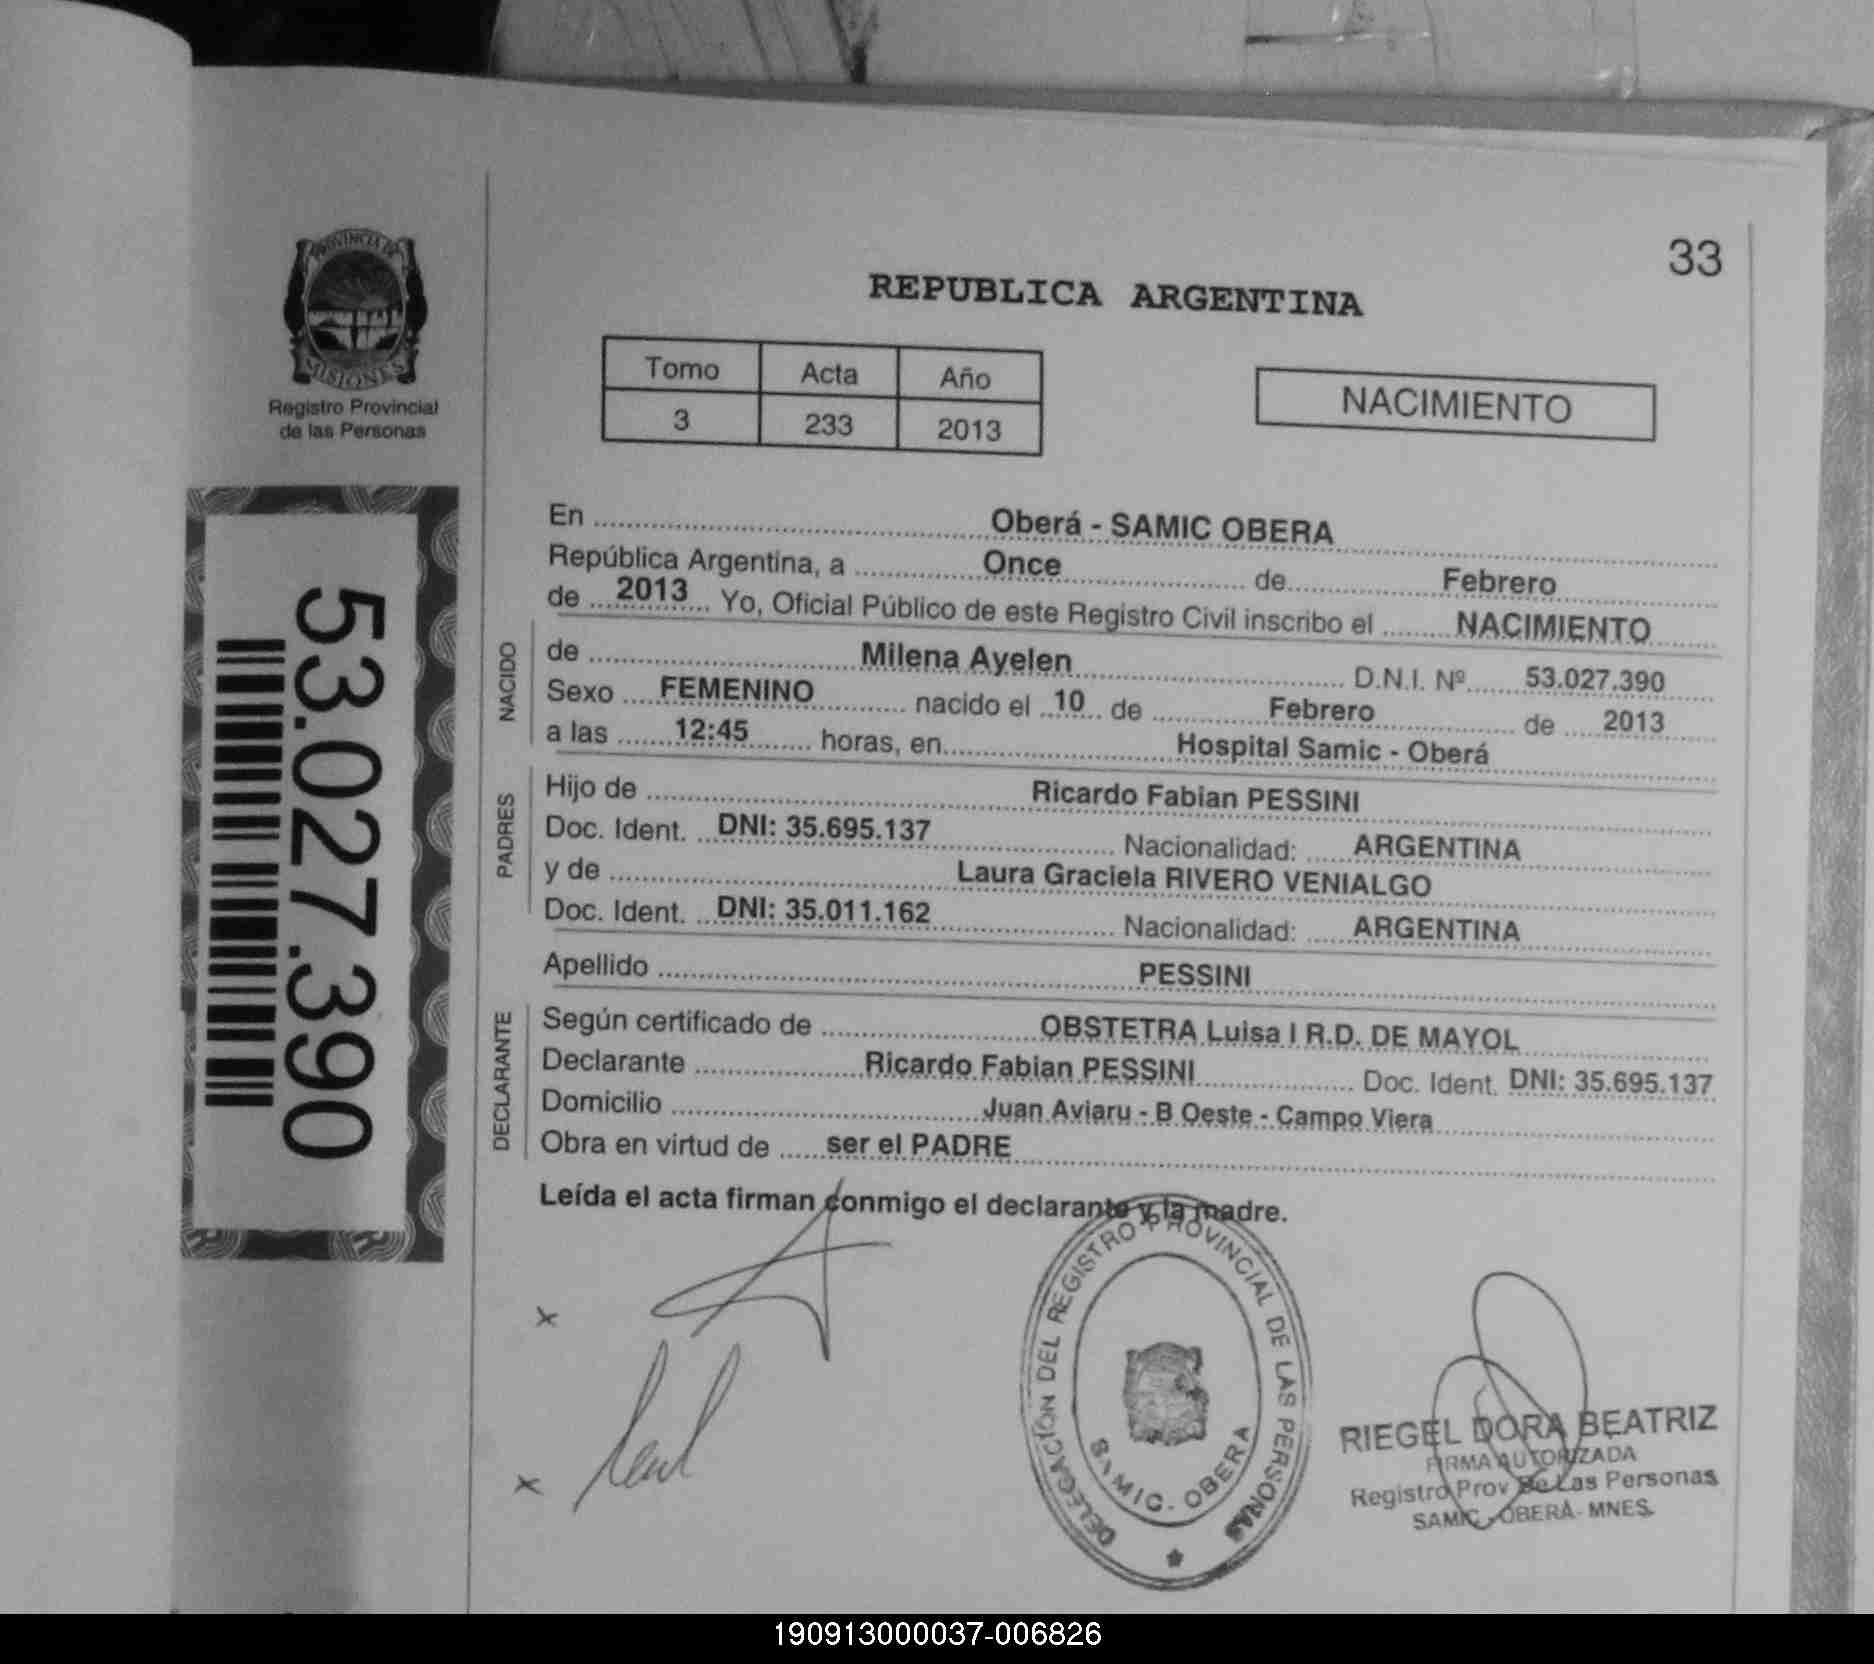 33
PROVINCIA DE
MISIONES
Registro Provincial
de las Personas
REPUBLICA ARGENTINA
Tomo Acta Año
3 233 2013
NACIMIENTO
53.027.390
En Oberá - SAMIC OBERA
República Argentina, a Once de Febrero
de 2013 Yo, Oficial Público de este Registro Civil inscribo el NACIMIENTO
NACIDO
de Milena Ayelen D.N.I. Nº 53.027.390
Sexo FEMENINO nacido el 10 de Febrero de 2013
a las 12:45 horas, en Hospital Samic - Oberá
PADRES
Hijo de Ricardo Fabian PESSINI
Doc. Ident. DNI: 35.695.137 Nacionalidad: ARGENTINA
y de Laura Graciela RIVERO VENIALGO
Doc. Ident. DNI: 35.011.162 Nacionalidad: ARGENTINA
Apellido PESSINI
DECLARANTE
Según certificado de OBSTETRA Luisa I R.D. DE MAYOL
Declarante Ricardo Fabian PESSINI Doc. Ident. DNI: 35.695.137
Domicilio Juan Aviaru - B Oeste - Campo Viera
Obra en virtud de ser el PADRE
Leída el acta firman conmigo el declarante y la madre.
x
x
DELEGACIÓN DEL REGISTRO PROVINCIAL DE LAS PERSONAS
SAMIC. OBERA
RIEGEL DORA BEATRIZ
FIRMA AUTORIZADA
Registro Prov De Las Personas
SAMIC - OBERÁ - MNES.
190913000037-006826